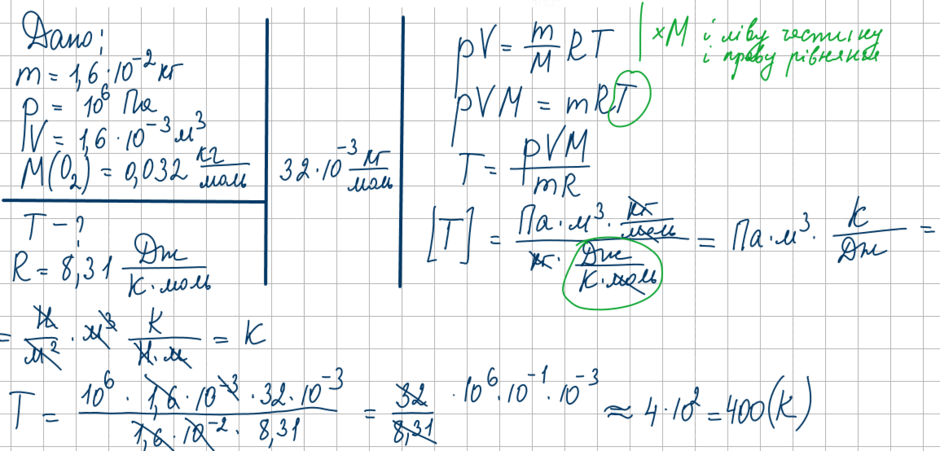 Дано:
m = 1,6·10⁻² кг
p = 10⁶ Па
V = 1,6·10⁻³ м³
M(O₂) = 0,032 кг/моль
32·10⁻³ кг/моль
T - ?
R = 8,31 Дж/(К·моль)
pV = m/M RT | ×M і ліву частину
і праву рівняння
pVM = mRT
T = pVM/mR
[T] = (Па·м³·кг/моль)/(кг·Дж/(К·моль)) = Па·м³·К/Дж =
= Н/м² · м³ К/(Н·м) = К
T = (10⁶·1,6·10⁻³·32·10⁻³)/(1,6·10⁻²·8,31) = 32/8,31 ·10⁶·10⁻¹·10⁻³ ≈ 4·10² = 400(К)